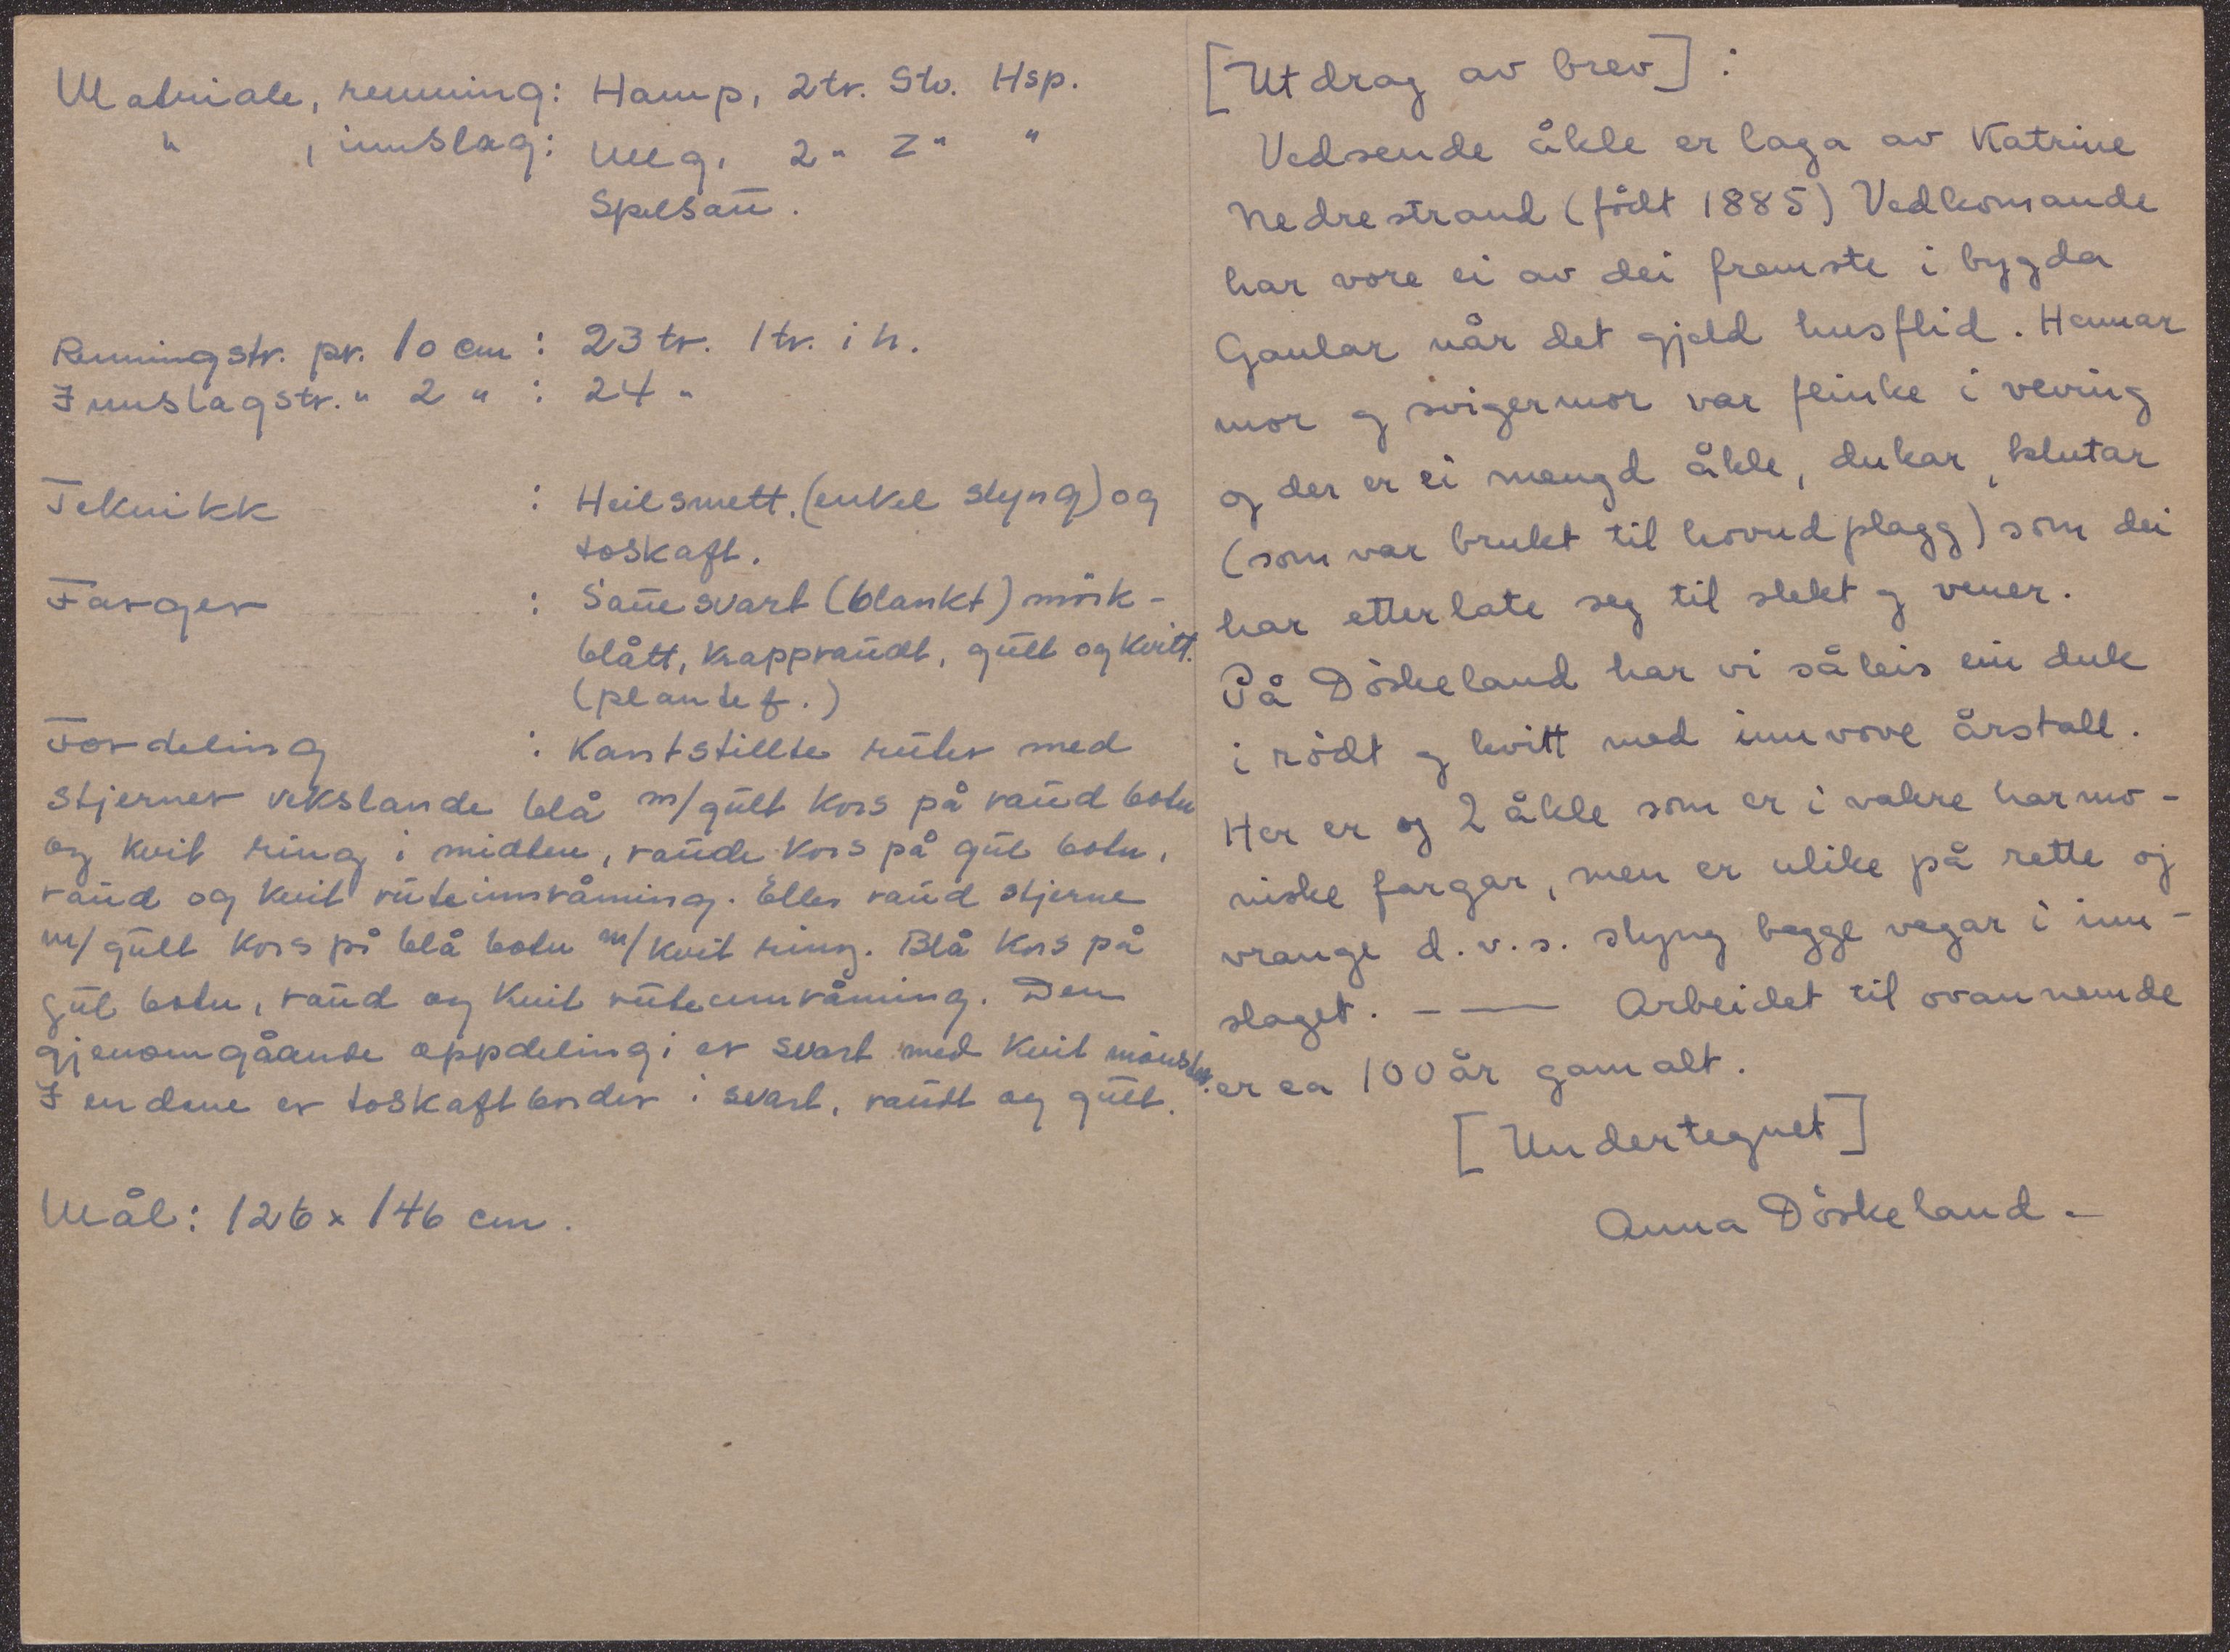 Matriale, renning: Hamp, 2tr. Stv. Hsp.
" , innslag: Ullg, 2 " Z " "
Spelsau.
Renningstr. pr. 10 cm : 23 tr. 1 tr. i h.
Innslagstr. " 2 " : 24 "
Teknikk : Heilsmett. (enkel slyng) og
toskaft.
Farger : Sauesvart (blankt) mörk-
blått, krappraudt, gult og kvitt.
(plantef.)
Fordeling : Kantstillte ruter med
stjerner vekslande blå m/gult kors på raud botn
og kvit ring i midten, raude kors på gul botn,
raud og kvit ruteinnråming. Eller raud stjerne
m/gult kors på blå botn m/kvit ring. Blå kors på
gul botn, raud og kvit ruteinnråming. Den
gjenomgåande oppdelingi er svart med kvit mönster.
I endene er toskaftborder i svart, raudt og gult.
Mål: 126 x 146 cm.
[Utdrag av brev] :
Vedsende åkle er laga av Katrine
Nedrestrand (födt 1885) Vedkomande
har vore ei av dei fremste i bygda
Gaular når det gjeld husflid. Hennar
mor og svigermor var flinke i veving
og der er ei mengd åkle, dukar, klutar
(som var brukt til hovudplagg) som dei
har etterlate seg til slekt og vener.
På Döskeland har vi såleis ein duk
i rödt og kvitt med innvove årstall.
Her er og 2 åkle som er i vakre harmo-
niske fargar, men er ulike på rette og
vrange d.v.s. slyng begge vegar i inn-
slaget. - — Arbeidet til ovannemde
er ca 100 år gamalt.
[Undertegnet]
Anna Döskeland -